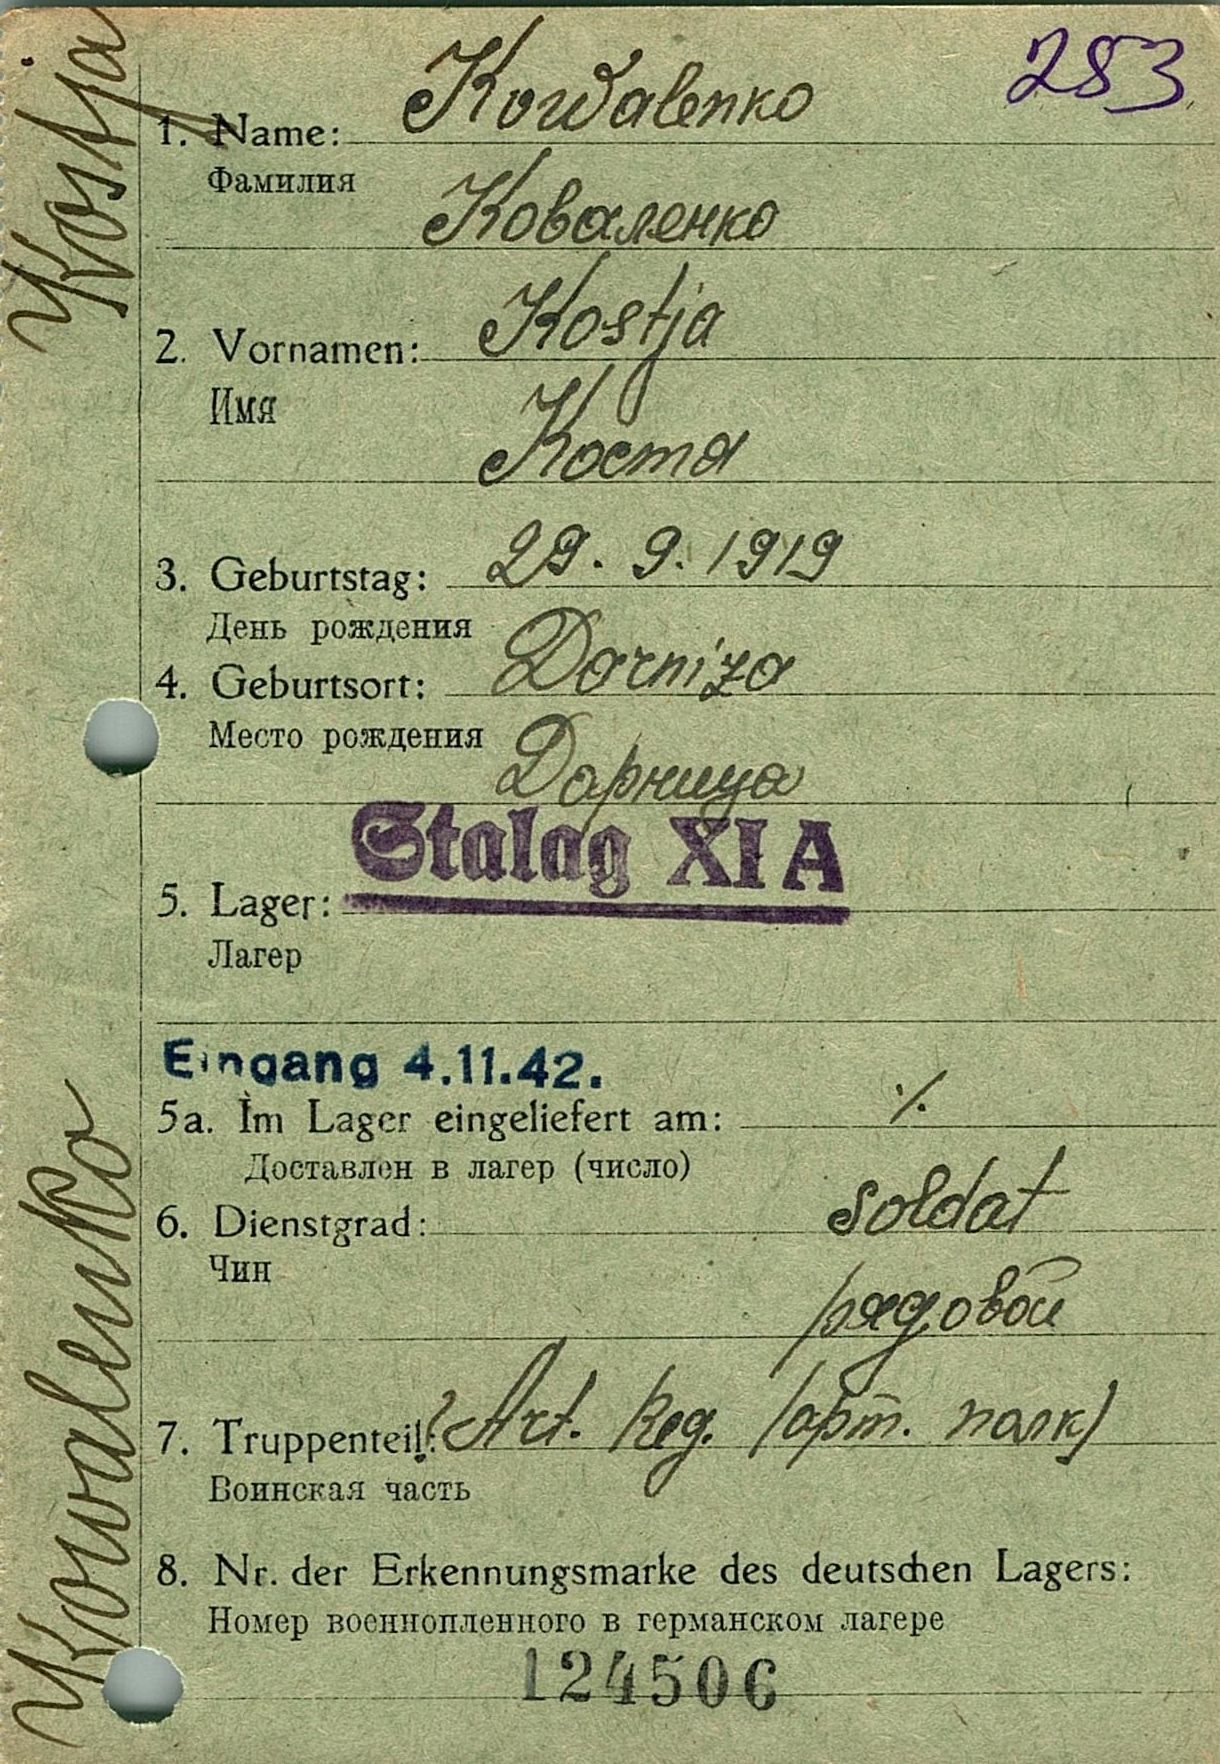 283
Kostja
Kowalenko
1. Name: Kowalenko
Фамилия
Коваленко
2. Vornamen: Kostja
Имя
Костя
3. Geburtstag: 29. 9. 1919
День рождения
4. Geburtsort: Darniza
Место рождения
Дарница
Stalag XI A
5. Lager:
Лагер
Eingang 4.11.42.
5a. Im Lager eingeliefert am: ·/.
Доставлен в лагер (число)
6. Dienstgrad: soldat
Чин
рядовой
7. Truppenteil: Art. Reg. (арт. полк)
Воинская часть
8. Nr. der Erkennungsmarke des deutschen Lagers:
Номер военнопленного в германском лагере
124506